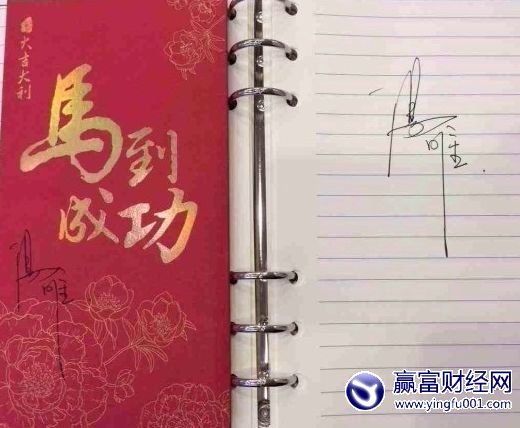 大吉大利
馬到
成功
湯唯
湯唯
赢富财经网
www.yingfu001.com